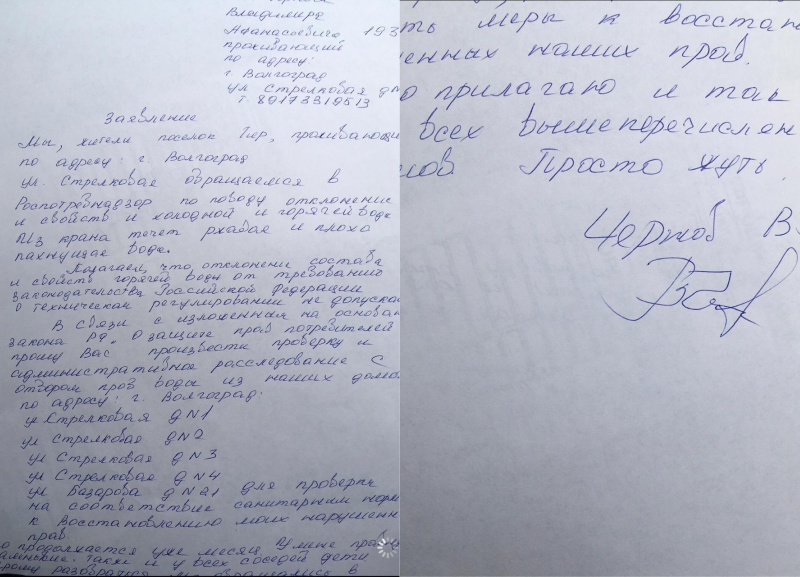 Владимира
Афанасьевича 193
проживающий
по адресу:
г Волгоград
ул Стрелковая дN
т. 89173319513
Заявление
Мы, жители поселок Гвр, проживающи
по адресу: г. Волгоград
ул. Стрелковая обращаемся в
Роспотребнадзор по поводу отклонение
и свойств и холодной и горячей воде
Из крана течет ржавае и плохо
пахнущае вода.
Полагаем, что отклонени состава
и свойств горячей воды от требований
законодательства Российской Федерации
о техническом регулировании не допускае
В связи с изложенная на основан
закона РФ. О защите прав потребителей
прошу Вас произвести проверку и
административное расследование с
отбором проб воды из наших домов
по адресу: г. Волгоград:
ул Стрелковая д N1
ул Стрелковая д N2
ул Стрелковая д N3
ул Стрелковая д N4
ул Базарова д N21 для проверки
на соответствие санитарным норм
к восстановлению моих нарушенн
прав
о продолжается уже месяц У меня
также и у всех соседей дети
обращались в
ть меры к восстано
енных наших прав.
о прилагаю и так
всех вышеперечислен
мов Просто жуть.
Чернов В.